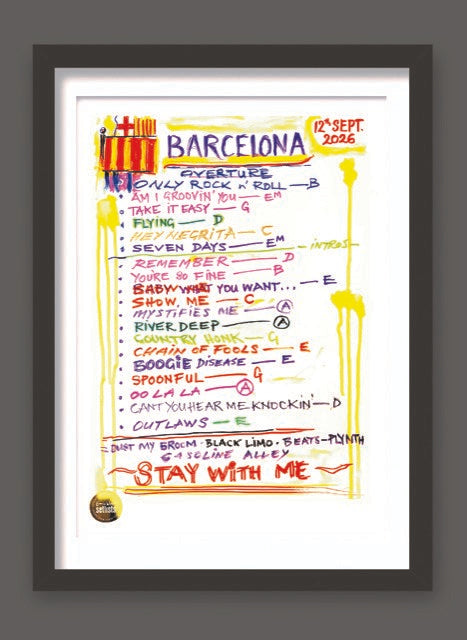 BARCELONA
12th SEPT.
2026
OVERTURE
ONLY ROCK n' ROLL — B
AM I GROOVIN' YOU — Em
TAKE IT EASY — G
FLYING — D
HEY NEGRITA — C
SEVEN DAYS — Em — intros —
REMEMBER — D
YOU'RE SO FINE — B
BABY WHAT YOU WANT... — E
SHOW, ME — C
MYSTIFIES ME — A
RIVER DEEP — A
COUNTRY HONK — G
CHAIN OF FOOLS — E
BOOGIE DISEASE — E
SPOONFUL — G
OO LA LA — A
CAN'T YOU HEAR ME KNOCKIN' — D
OUTLAWS — E
DUST MY BROOM · BLACK LIMO · BEATS - PLYNTH
GASOLINE ALLEY
~ STAY WITH ME ~
setlists